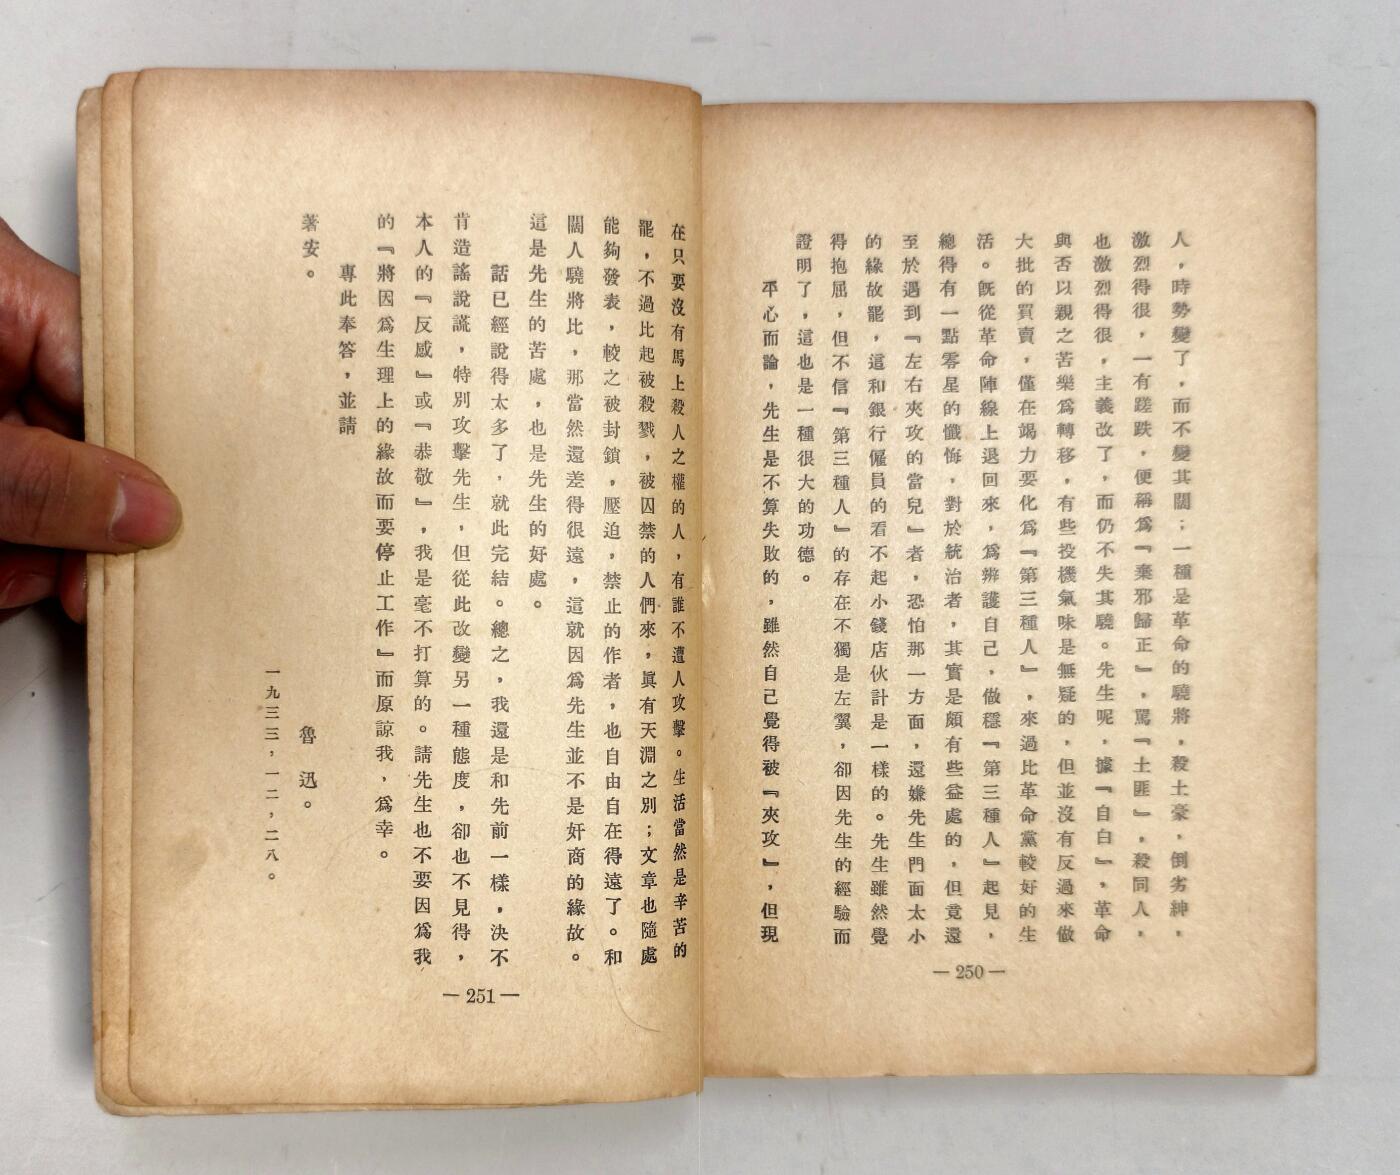 人，時勢變了，而不變其闊；一種是革命的驍將，殺土豪，倒劣紳，
激烈得很，一有蹉跌，便稱爲『棄邪歸正』，罵『土匪』，殺同人，
也激烈得很，主義改了，而仍不失其驍。先生呢，據『自白』，革命
與否以親之苦樂爲轉移，有些投機氣味是無疑的，但並沒有反過來做
大批的買賣，僅在竭力要化爲『第三種人』，來過比革命黨較好的生
活。既從革命陣線上退回來，爲辨護自己，做穩『第三種人』起見，
總得有一點零星的懺悔，對於統治者，其實是頗有些益處的，但竟還
至於遇到『左右夾攻的當兒』者，恐怕那一方面，還嫌先生門面太小
的緣故罷，這和銀行僱員的看不起小錢店伙計是一樣的。先生雖然覺
得抱屈，但不信『第三種人』的存在不獨是左翼，卻因先生的經驗而
證明了，這也是一種很大的功德。
平心而論，先生是不算失敗的，雖然自己覺得被『夾攻』，但現
— 250 —
在只要沒有馬上殺人之權的人，有誰不遭人攻擊。生活當然是辛苦的
罷，不過比起被殺戮，被囚禁的人們來，眞有天淵之別；文章也隨處
能夠發表，較之被封鎖，壓迫，禁止的作者，也自由自在得遠了。和
闊人驍將比，那當然還差得很遠，這就因爲先生並不是奸商的緣故。
這是先生的苦處，也是先生的好處。
話已經說得太多了，就此完結。總之，我還是和先前一樣，決不
肯造謠說謊，特別攻擊先生，但從此改變另一種態度，卻也不見得，
本人的『反感』或『恭敬』，我是毫不打算的。請先生也不要因爲我
的『將因爲生理上的緣故而要停止工作』而原諒我，爲幸。
專此奉答，並請
著安。
魯迅。
一九三三，一二，二八。
— 251 —